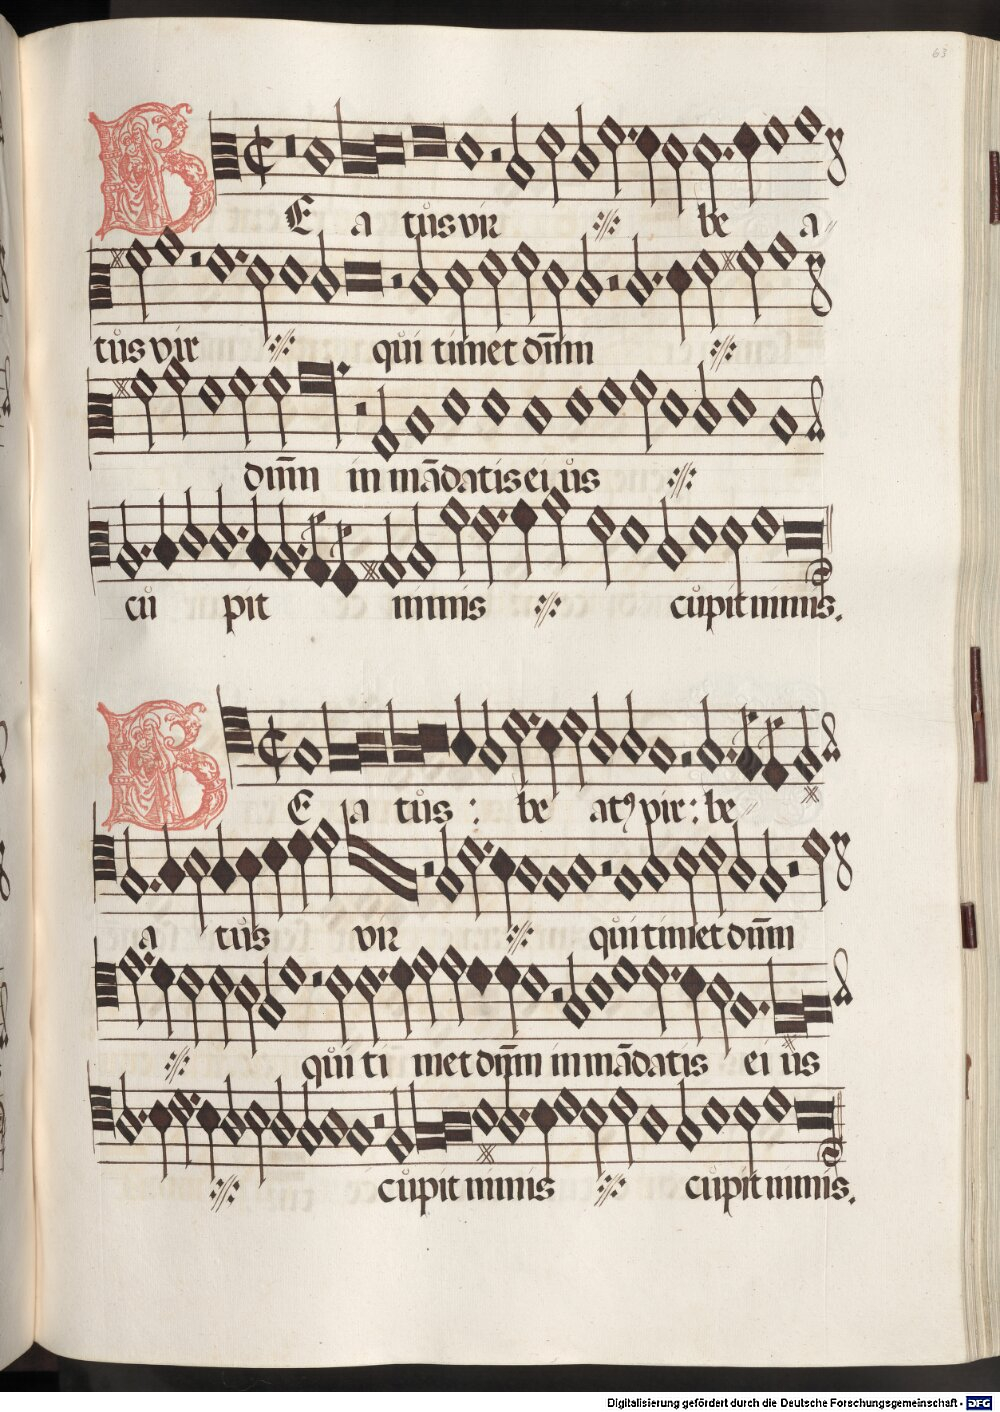 63
BEatus vir be a
tus vir qui timet dñm
dñm in mādatis eius
cu pit nimis cupit nimis.
BEatus : be atꝰ vir : be
a tus vir qui timet dñm
qui timet dñm in mādatis eius
cupit nimis cupit nimis.
Digitalisierung gefördert durch die Deutsche Forschungsgemeinschaft - DFG